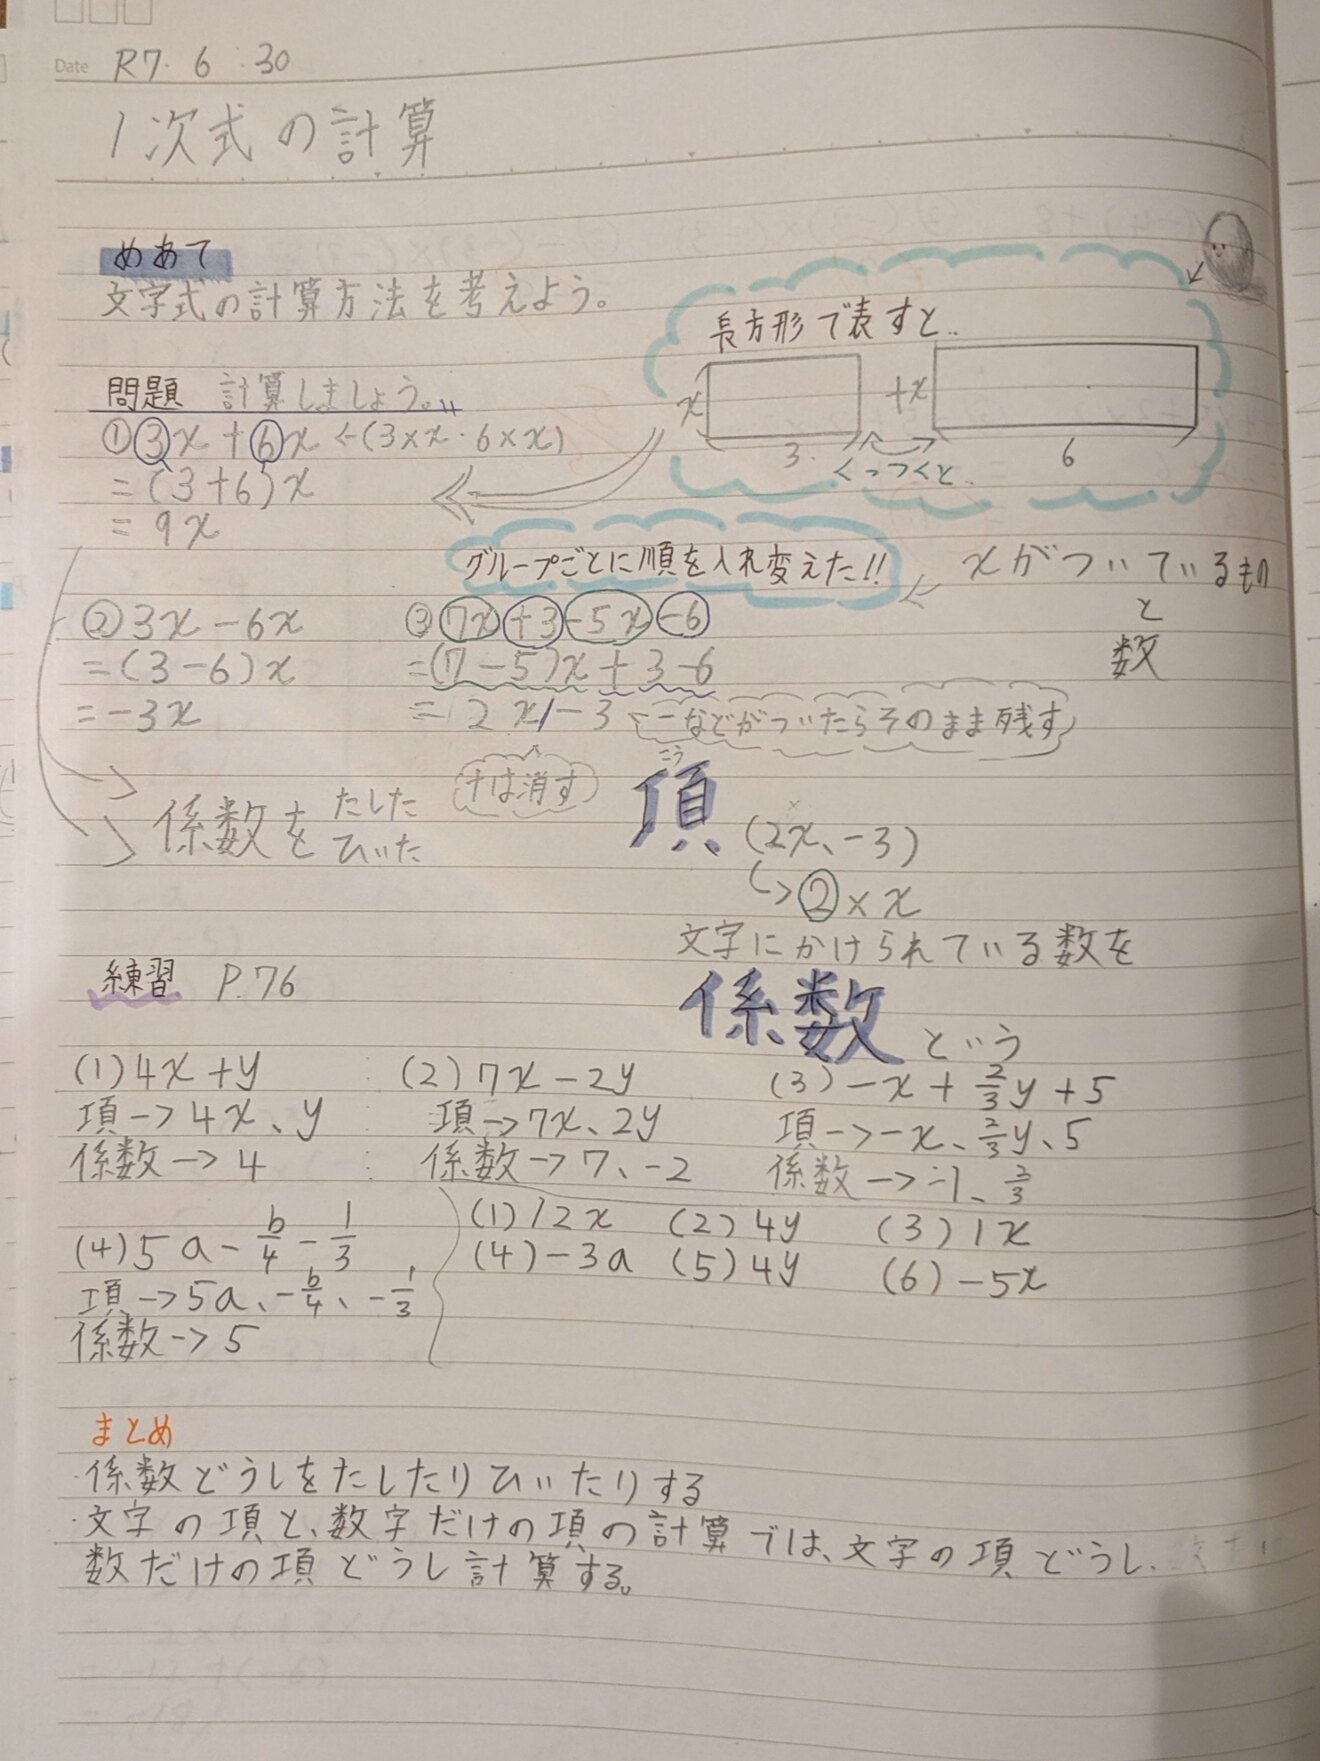 Date R7. 6 .30
1次式の計算
めあて
文字式の計算方法を考えよう。
長方形で表すと..
x 3 +x 6
くっつくと..
問題 計算しましょう。
①3x+6x ←(3×x・6×x)
=(3+6)x
=9x
グループごとに順を入れ変えた!!
← xがついているもの
と
数
②3x-6x
=(3-6)x
=-3x
③7x+3-5x-6
=(7-5)x+3-6
=2x/-3
-などがついたらそのまま残す
+は消す
係数をたした
ひいた
こう
項(2x、-3)
↳②×x
文字にかけられている数を
係数という
練習 P.76
(1)4x+y
項->4x、y
係数->4
(2)7x-2y
項->7x、2y
係数->7、-2
(3)-x+2/3y+5
項->-x、2/3y、5
係数->-1、2/3
(4)5a-b/4-1/3
項->5a、-b/4、-1/3
係数->5
(1)12x (2)4y (3)1x
(4)-3a (5)4y (6)-5x
まとめ
・係数どうしをたしたりひいたりする
・文字の項と、数字だけの項の計算では、文字の項どうし、
数だけの項どうし計算する。